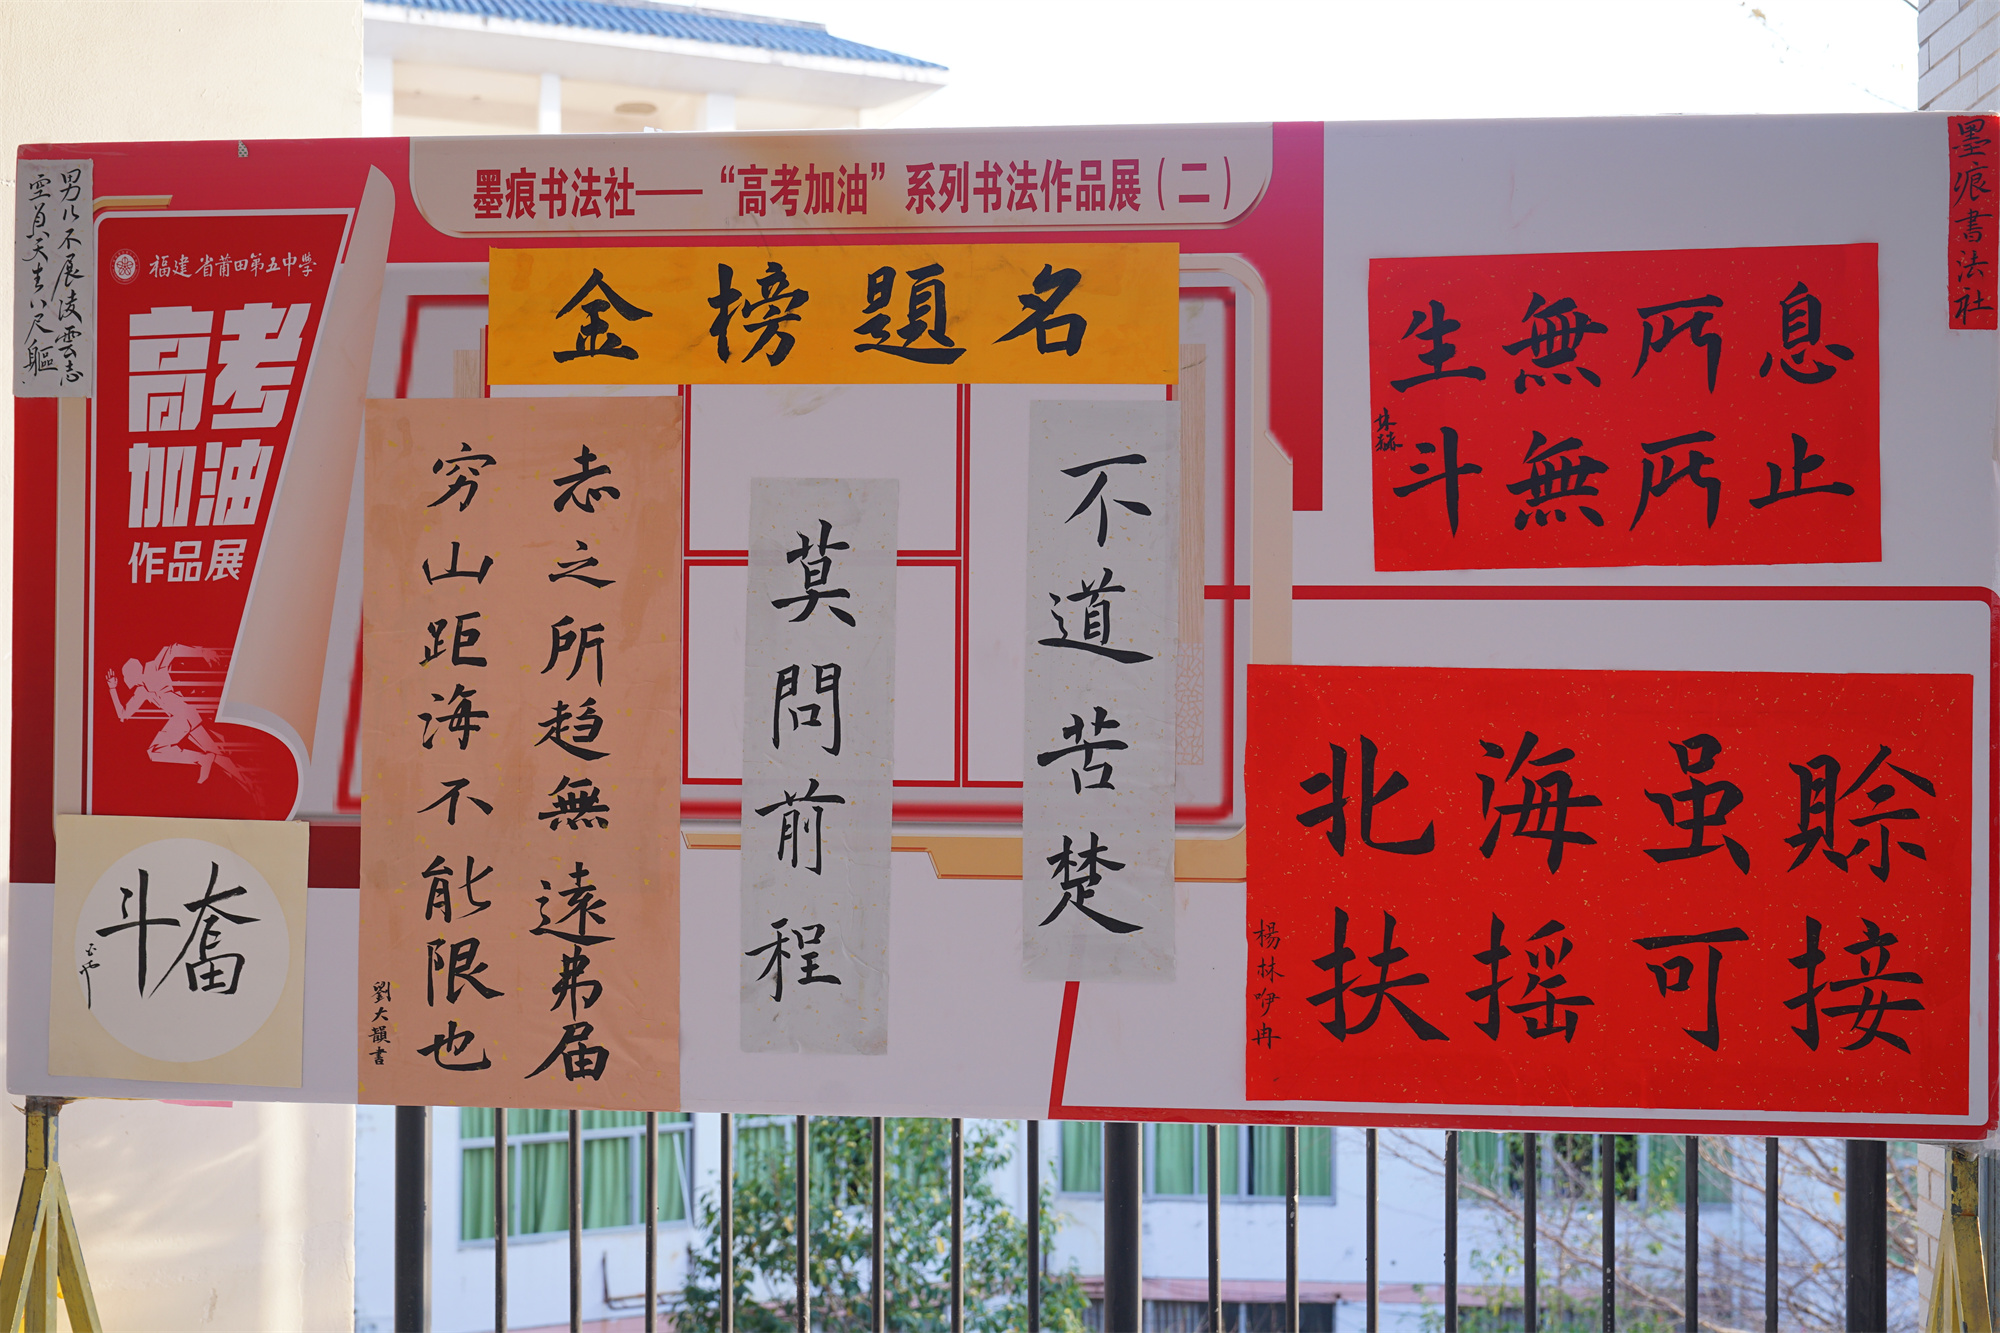 墨痕书法社——“高考加油”系列书法作品展(二)
墨痕書法社
男儿不展凌雲志
空負天生八尺軀
福建省莆田第五中学
高考
加油
作品展
金榜題名
志之所趋無遠弗届
穷山距海不能限也
劉大韻書
不道苦楚
莫問前程
生無所息
斗無所止
林赫
北海虽賒
扶摇可接
楊林咿冉
奮斗